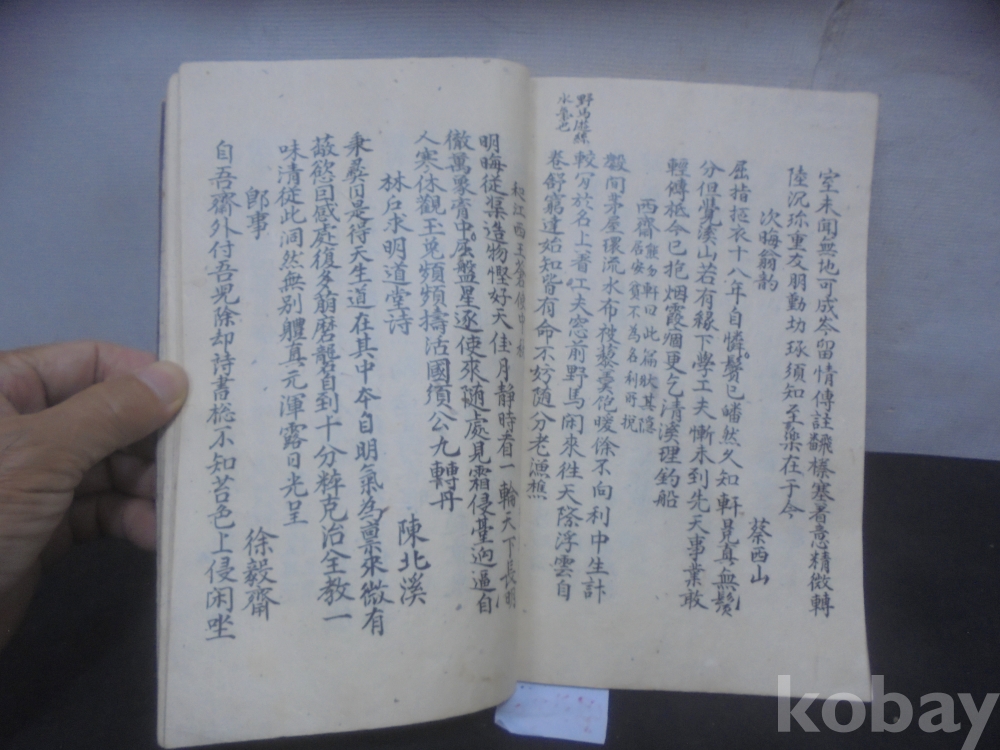 室未聞無地可成岑留情傳註飜榛塞着意精微轉
陸沉珎重友朋勤切琢須知至樂在于今
次晦翁韵 蔡西山
屈指摳衣十八年自憐鬢已皤然久知軒冕真無
分但覺溪山若有緣下學工夫慚未到先天事業敢
輕傳柢今已抱烟霞痼更乞清溪理釣船
西齋 熊勿軒曰此篇狀其隱居安貧不為名利所
數間茅屋環流水布被藜羹飽暖餘不向利中生計
較 於名上着工夫窓前野馬閑來徃天際浮雲自
卷舒窮達始知皆有命不妨随分老漁樵
野馬
水 也
和江西王
明晦從渠造物慳好天佳月靜時看一輪天下長明
徹萬衆胷中 盤星逐使來随處見霜侵 逈逼自
人寒休觀玉兎頻頻擣活國須公九轉丹
林戶求明道堂詩 陳北溪
秉彛旧是得天生道在其中夲自明氣為禀來微有
蔽慾回感處復多萠磨礱自到十分粹克治全教一
味清從此洞然無别軆真元渾露日光呈
即事 徐毅齋
自吾齋外付吾児除却詩書捴不知苔色上侵闲坐
kobay